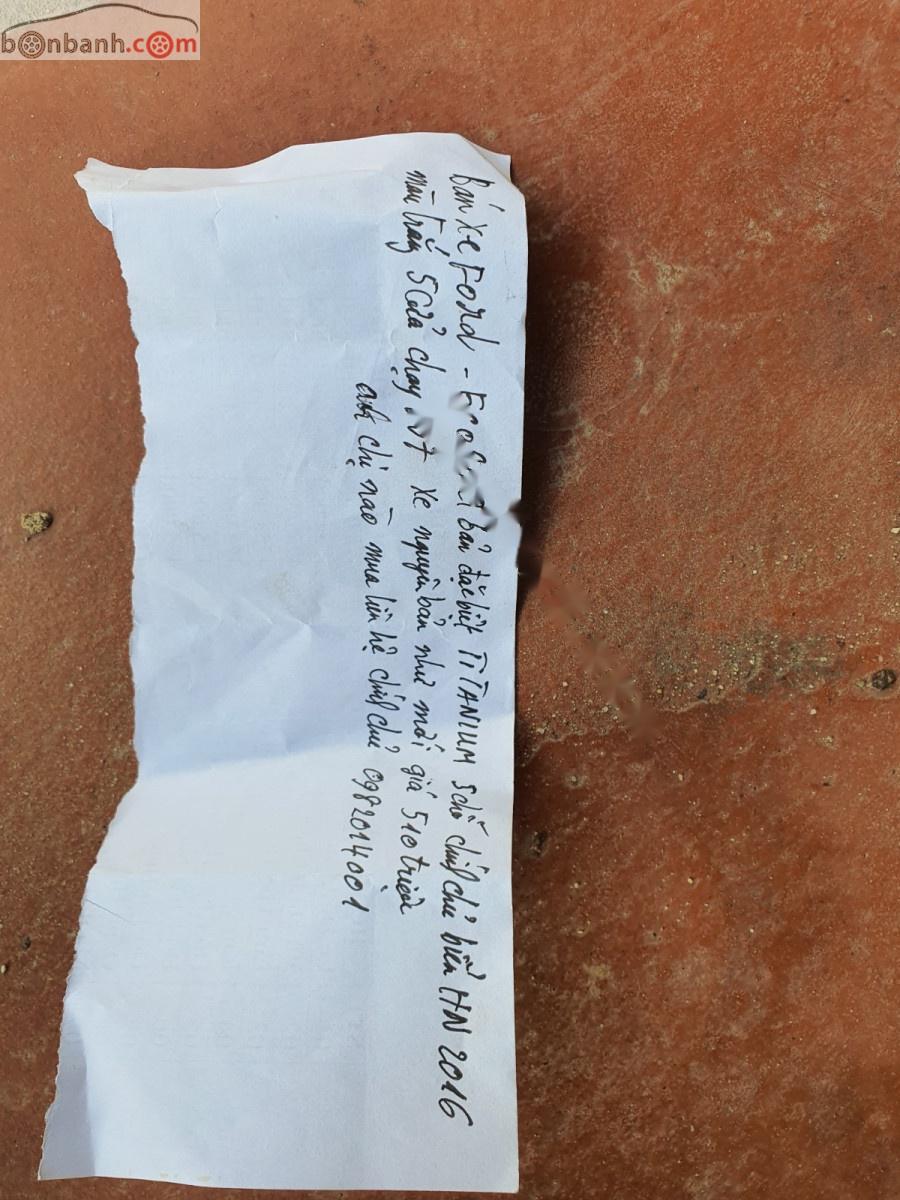 bonbanh.com
Bán xe Ford - bản đặc biệt TITANIUM 5 chỗ chính chủ biển HN 2016
màu trắng 5 cửa chạy xe nguyên bản như mới giá 510 triệu
anh chị nào mua liên hệ chính chủ 0982014001